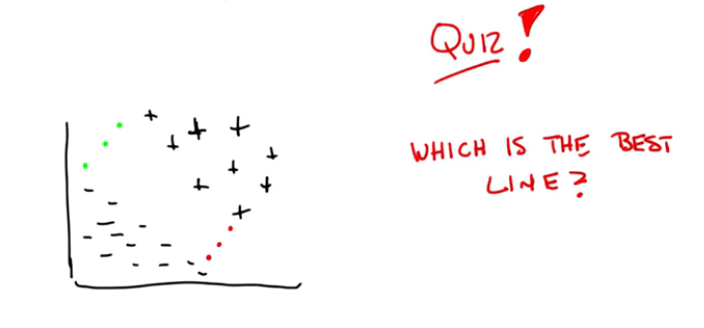 QUIZ!
WHICH IS THE BEST
LINE?